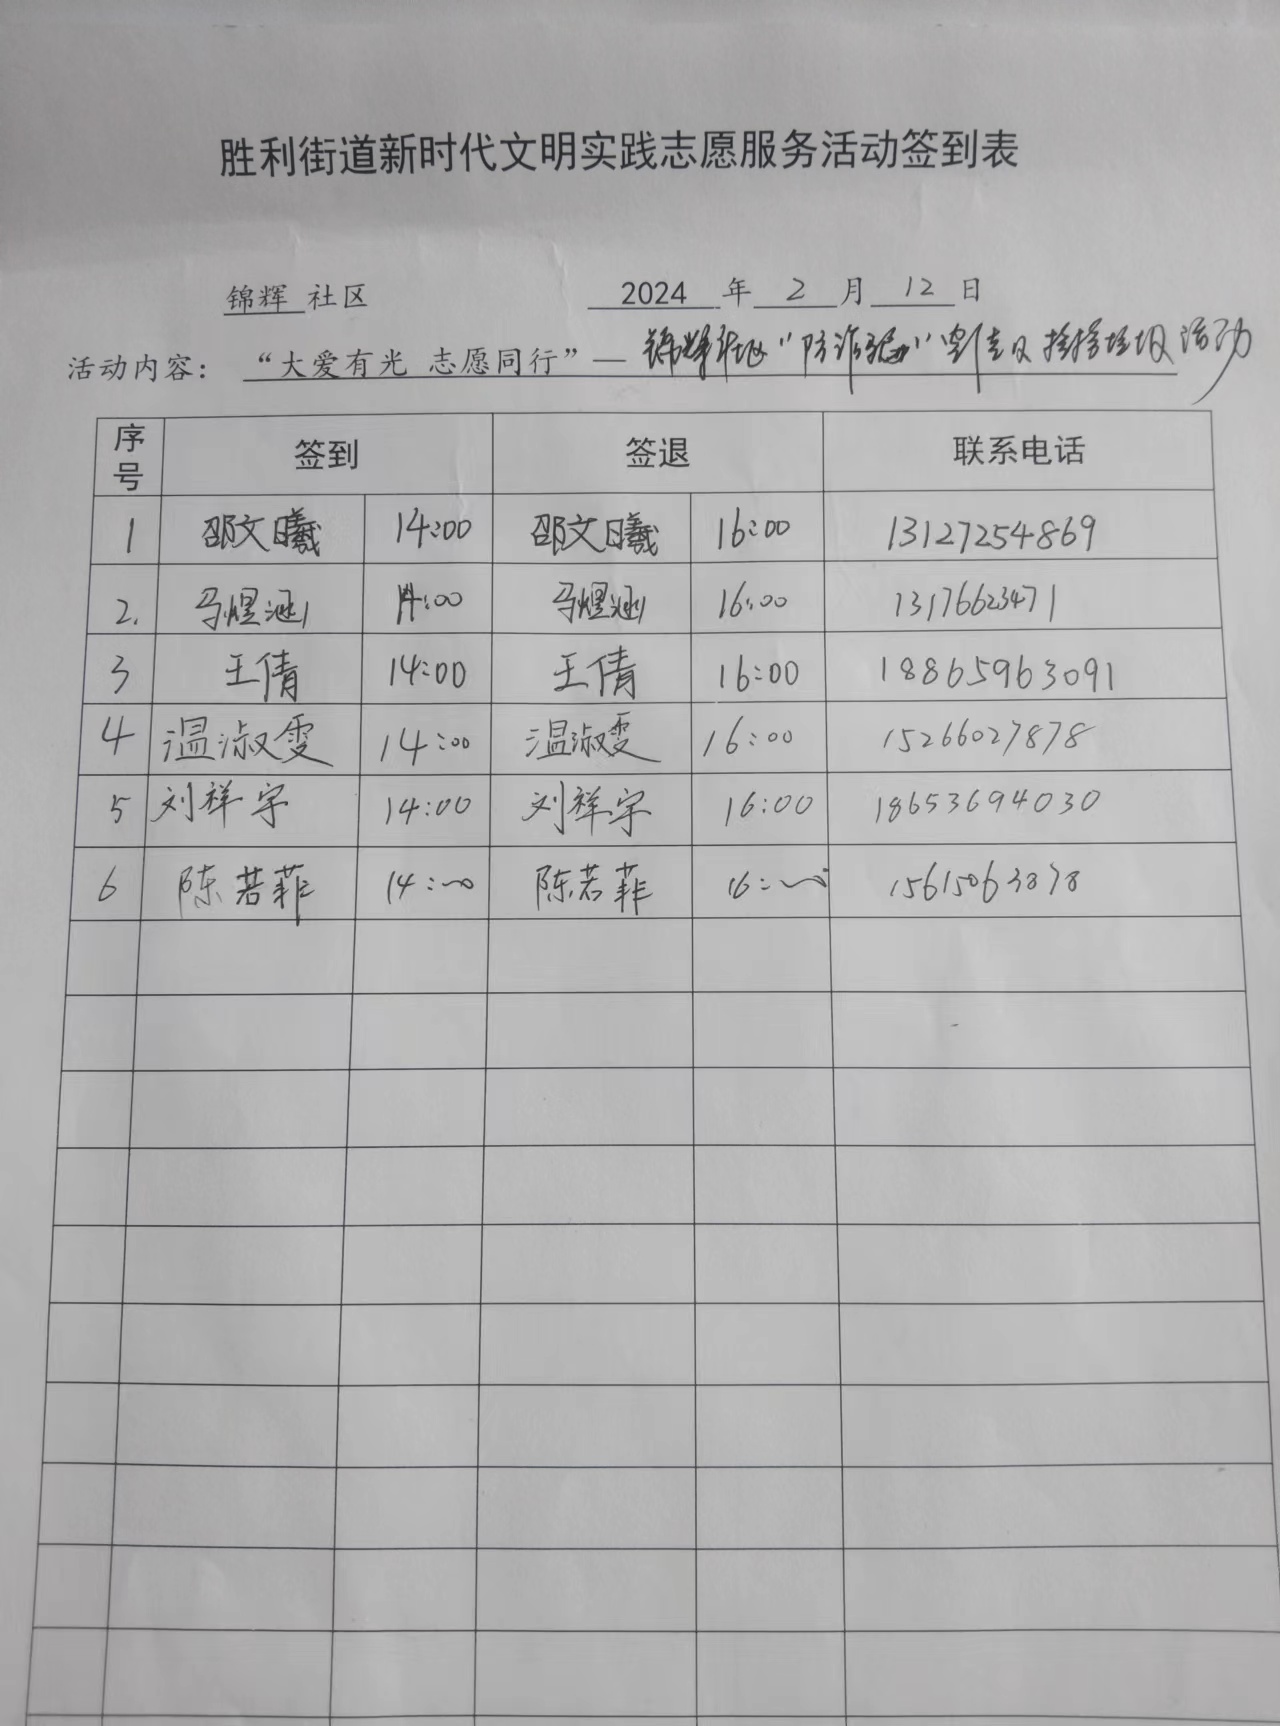 胜利街道新时代文明实践志愿服务活动签到表
锦辉 社区 2024 年 2 月 12 日
活动内容： “大爱有光 志愿同行”— 锦辉社区“防诈骗”宣传及捡拾垃圾活动
序号 签到 签退 联系电话
1 邵文曦 14:00 邵文曦 16:00 13127254869
2. 马煜涵 14:00 马煜涵 16:00 13176623471
3 王倩 14:00 王倩 16:00 18865963091
4 温淑雯 14:00 温淑雯 16:00 15266027878
5 刘祥宇 14:00 刘祥宇 16:00 18653694030
6 陈若菲 14:00 陈若菲 16:00